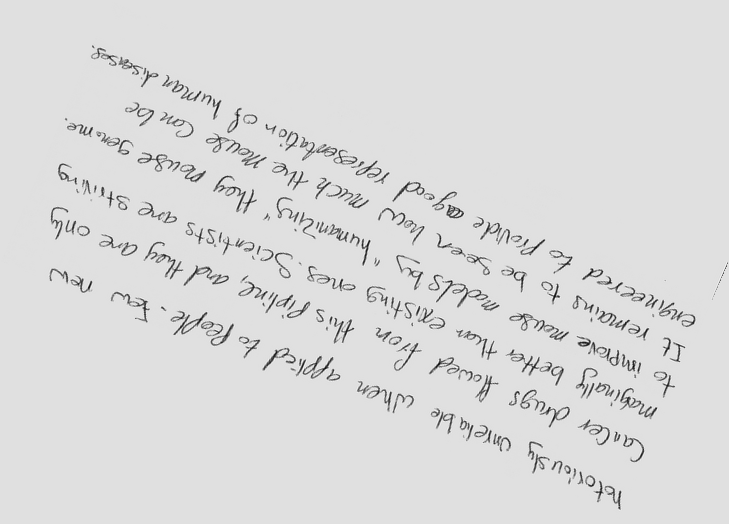 notoriously unreliable when applied to people. Few new
cancer drugs flowed from this pipline, and they are only
maginally better than existing ones. Scientists are striving
to improve mouse models by "humanizing" they mouse genome.
It remains to be seen how much the mouse can be
engineered to provide agood representation of human diseases.